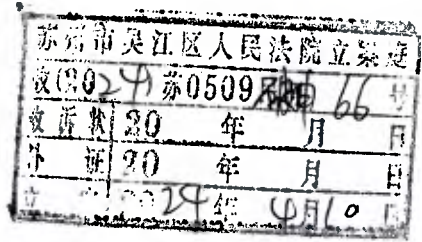 苏州市吴江区人民法院立案庭
收(2024)苏0509破申66号
收诉状20 年 月 日
补 证20 年 月 日
立 2024年4月10日